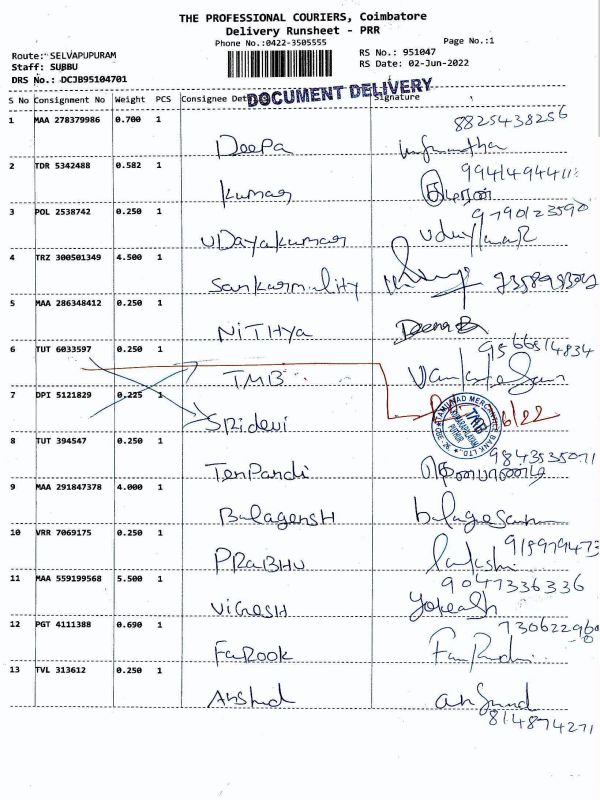 THE PROFESSIONAL COURIERS, Coimbatore
Delivery Runsheet - PRR
Phone No.:0422-3505555
Page No.:1
Route: SELVAPUPURAM
RS No.: 951047
Staff: SUBBU
RS Date: 02-Jun-2022
DRS No.: DCJB95104701
DOCUMENT DELIVERY
S No Consignment No Weight PCS Consignee Det Signature
1 MAA 278379986 0.700 1 8825438256
Deepa
2 TDR 5342488 0.582 1
Kumar
3 POL 2538742 0.250 1 9790123590
UDayakumar
4 TRZ 300501349 4.500 1
5 MAA 286348412 0.250 1
NiTHya Deena B
6 TUT 6033597 0.250 1 9566514834
TMB
7 DPI 5121829 0.225 1 6/22
TAMILNAD MERCANTILE BANK LTD. TMB
Sridevi
8 TUT 394547 0.250 1 9843535071
TenPandi
9 MAA 291847378 4.000 1
Balagensh
10 VRR 7069175 0.250 1
PRaBHU
11 MAA 559199568 5.500 1 9047336336
ViGnesH
12 PGT 4111388 0.690 1
Farook
13 TVL 313612 0.250 1
Arshad
814874271